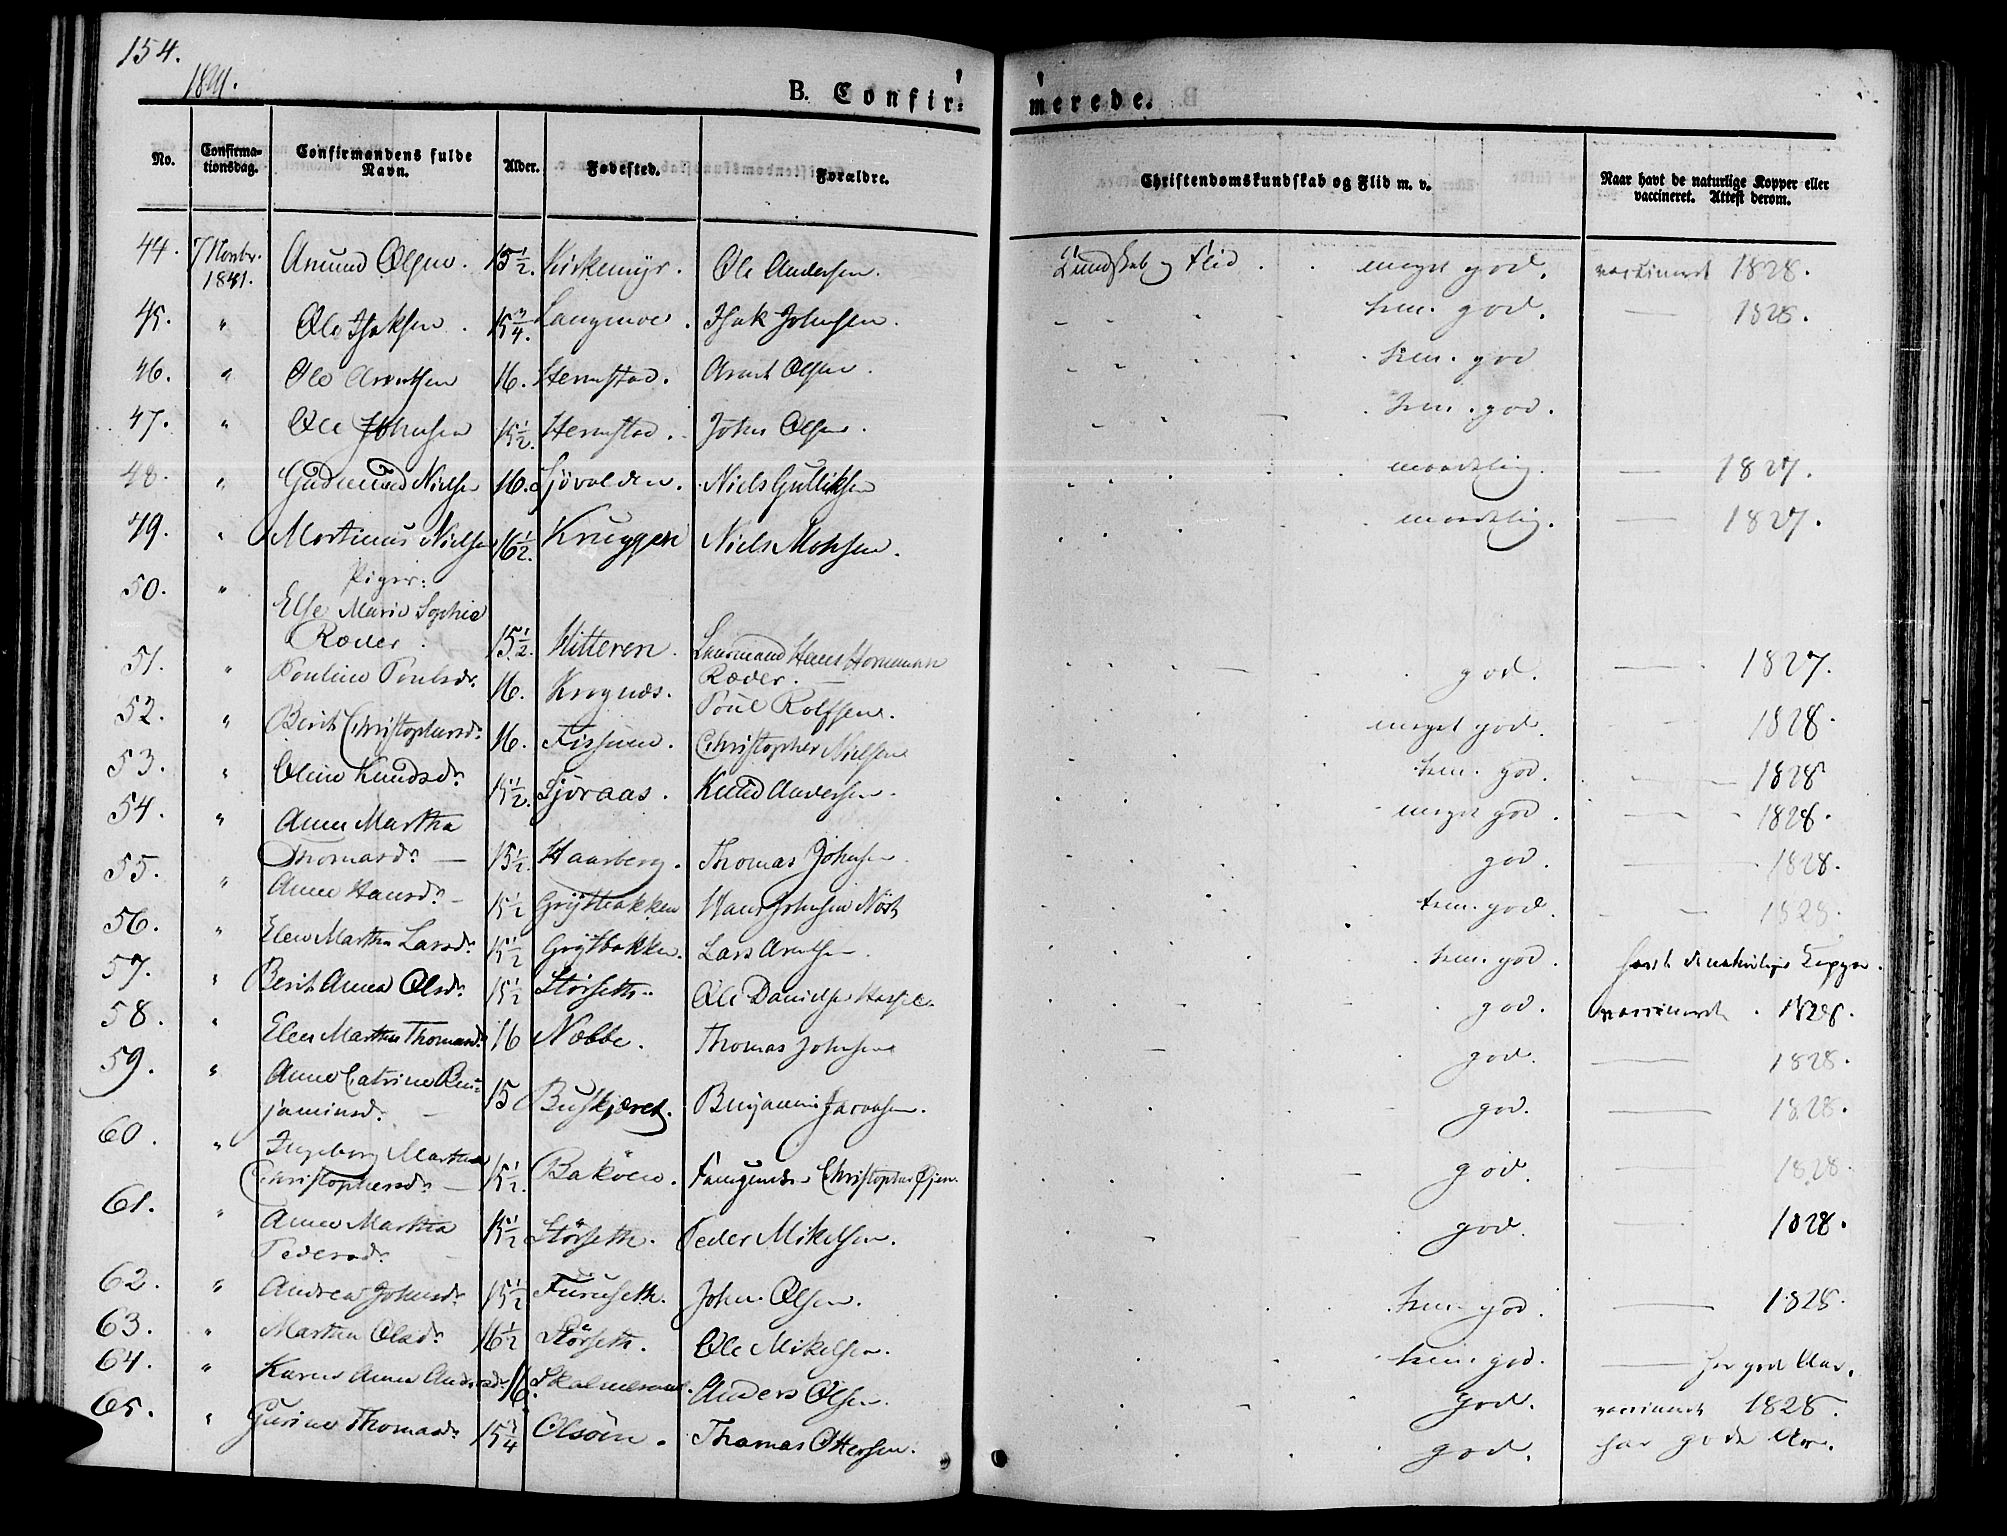 154.
1841.
B. Confir-
merede.
No. Confirma-tionsdag. Confirmandens fulde Navn. Alder. Fødested. Forældre. Christendomskundskab og Flid m. v. Naar havt de naturlige Kopper eller vaccineret. Attest derom.
44. 7 Novbr. 1841. Amund Olsen. 15 1/2. Kirkemyr. Ole Andersen. Kundskab og Flid meget god. vaccineret 1828.
45. " Ole Isaksen. 15 3/4. Langmoe. Isak Johnsen. tem. god. — 1828.
46. " Ole Arntsen 16. Hernstad. Arnt Olsen. tem. god
47. " Ole Johnsen 15 1/2. Hernstad. John Olsen. tem. god.
48. " Gudmund Nielsen 16. Sjøvolden. Niels Gulliksen maadelig. — 1827.
49. " Martinus Nielsen 16 1/2. Kruggen Niels Monsen. maadelig. — 1827.
Piger:
50. " Else Marie Sophie Ræder. 15 1/2. Hitteren. Hans Hornemann Ræder. god. — 1827.
51. " Pouline Poulsdr. 16. Krognæs. Poul Rolfsen. meget god. — 1828.
52. " Berit Christophersdr. 16. Christopher Nielsen tem. god. — 1828
53. " Oline Knudsdr. 15 1/2. Sjøraas. Knud Andersen. meget god. — 1828.
54. " Anne Martha Thomasdr. — 15 1/2. Haarberg. Thomas Johnsen. god. — 1828.
55. " Anne Hansdr. — 15 1/2 Grytbakken Hans Johnsen tem. god. — 1828.
56. " Elen Martha Larsdr. 15 1/2 Grytbakken. Lars Arntsen. tem. god. havt de naturlige Kopper.
57. " Berit Anna Olsdr. 15 1/2 Størseth. Ole Danielsen god. vaccineret. 1828.
58. " Elen Martha Thomasdr. 16 Nebbe. Thomas Johnsen god. — 1828.
59. " Anne Catrine Benjaminsd. — 15 Buskjæret. Benjamin god. — 1828.
60. " Ingeborg Martha Christophersdr. — 15 1/2. Bakøen. Christopher god. — 1828.
61. " Anne Martha Pedersdr. — 15 1/2 Størseth. Peder Mikelsen. god. — 1828.
62. " Andrea Johnsdr. 15 1/2 Furuseth. John Olsen. tem. god. — 1828.
63. " Martha Olsdr. 16 1/2 Størseth. Ole Mikelsen. tem. god. — har god Aar.
64. " Karen Anna Andersdr. 16. Anders Olsen. god. vaccineret 1828.
65. " Gurine Thomasdr. 15 3/4 Olsøen. Thomas Ottersen. god. har gode Aar.